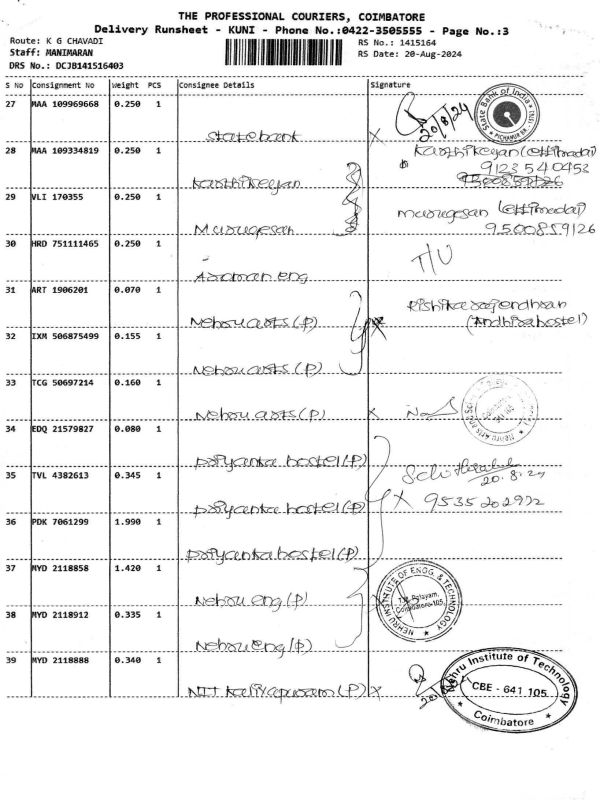 THE PROFESSIONAL COURIERS, COIMBATORE
Delivery Runsheet - KUNI - Phone No.:0422-3505555 - Page No.:3
Route: K G CHAVADI
RS No.: 1415164
Staff: MANIMARAN
RS Date: 20-Aug-2024
DRS No.: DCJB141516403
S No Consignment No Weight PCS Consignee Details Signature
27 MAA 109969668 0.250 1 Statebank X 20/8/24
State Bank of India
28 MAA 109334819 0.250 1 Karthikeyan Karthikeyan (ettimadai)
9123540453
9500859126
29 VLI 170355 0.250 1 Murugesan murugesan (ettimadai)
9500859126
30 HRD 751111465 0.250 1 eng T/U
31 ART 1906201 0.070 1 Nehru arts (P)
(Andhra hostel)
32 IXM 506875499 0.155 1 Nehru arts (P)
33 TCG 50697214 0.160 1 Nehru arts (P) X
34 EDQ 21579827 0.080 1 priyanka hostel (P)
20.8.24
35 TVL 4382613 0.345 1 priyanka hostel (P) X 9535202972
36 PDK 7061299 1.990 1 priyanka hostel (P)
37 MYD 2118858 1.420 1 Nehru eng (P) X
NEHRU INSTITUTE OF ENGG. & TECHNOLOGY
T.M. Palayam,
Coimbatore-105.
38 MYD 2118912 0.335 1 Nehru eng (P)
39 MYD 2118888 0.340 1 NIT Kaliyapuram (P) X
Nehru Institute of Technology
CBE - 641 105
Coimbatore